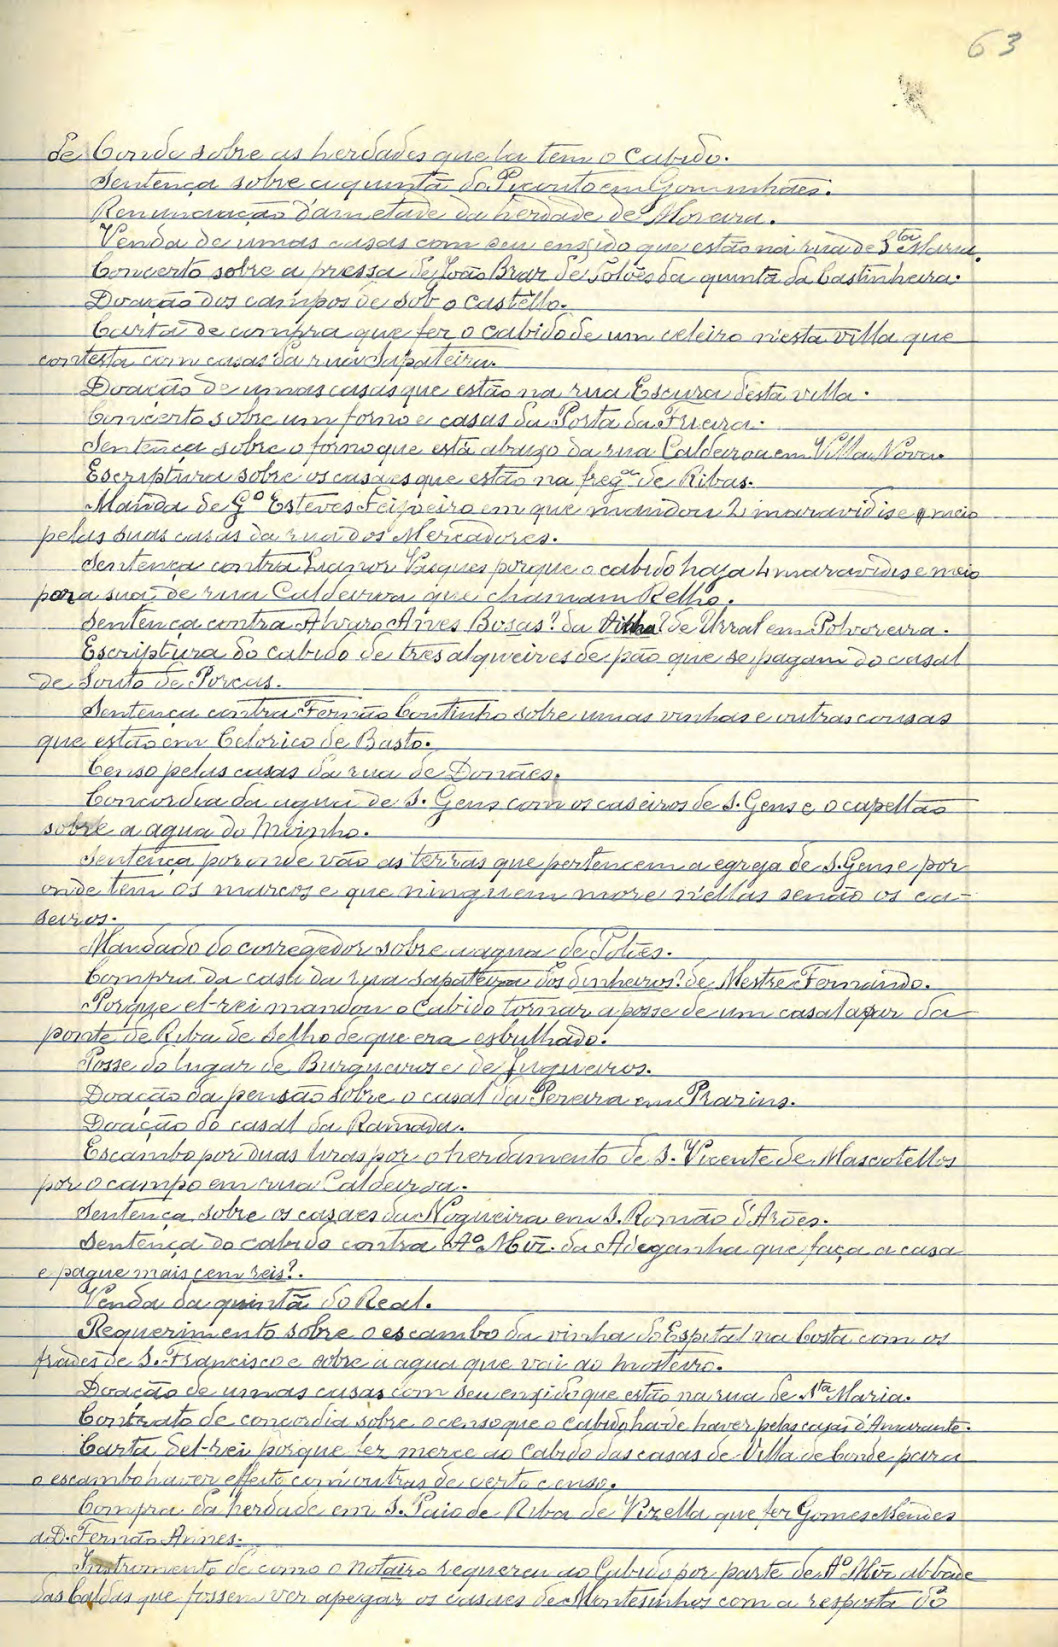 63
de Conde sobre as herdades que la tem o Cabido.
Sentença sobre a quintã do Picouto em Gominhães.
Renunciação d'ametade da herdade de Moreira.
Venda de umas casas com seu enxido que estão na rua de Sta Maria.
Concerto sobre a pressa de João Braz de Polves da quintã da Castinheira.
Doação dos campos de sob o Castello.
Carta de compra que fez o cabido de um celeiro n'esta villa que
contesta com casas da rua Sapateira.
Doação de umas casas que estão na rua Escura d'esta villa.
Concerto sobre um forno e casas da Porta da Freira.
Sentença sobre o forno que está abaixo da rua Caldeiroa em Villa Nova.
Escriptura sobre os casaes que estão na fregª de Ribas.
Manda de Gº Esteves Feijoeiro em que mandou 2 maravidis e meio
pelas suas casas da rua dos Mercadores.
Sentença contra Lianor Vasques porque o cabido haja 4 maravidis e meio
por a sua, de rua Caldeiroa que chamam Relho.
Sentença contra Alvaro Annes Bosas? da Vinha? de Urral em Polvoreira.
Escriptura do cabido de tres alqueires de pão que se pagam do casal
de Souto de Porcas.
Sentença contra Fernão Coutinho sobre umas vinhas e outras cousas
que estão em Celorico de Basto.
Censo pelas casas da rua de Donães.
Concordia da agua de S. Gens com os caseiros de S. Gens e o capellão
sobre a agua do Moinho.
Sentença por onde vão as terras que pertencem a egreja de S. Gens e por
onde tem os marcos e que ninguem more n'ellas senão os ca-
seiros.
Mandado do corregedor sobre a agua de Polves.
Compra da casa da rua sapateira dos dinheiros? de Mestre Fernando.
Porque el-rei mandou o Cabido tornar a posse de um casal apar da
ponte de Riba de Selho de que era esbulhado.
Posse do lugar de Burgueiros e de Jugueiros.
Doação da pensão sobre o casal da Pereira em Prazins.
Doação do casal da Ramada.
Escambo por duas liras por o herdamento de S. Vicente de Mascotellos
por o campo em rua Caldeiroa.
Sentença sobre os casaes da Nogueira em S. Romão d'Arões.
Sentença do cabido contra Aº Miz. da Adeganha que faça a casa
e pague mais cem reis?.
Venda da quintã do Real.
Requerimento sobre o escambo da vinha do Espital na Costa com os
frades de S. Francisco e sobre a agua que vai ao mosteiro.
Doação de umas casas com seu enxido que estão na rua de Sta Maria.
Contrato de concordia sobre o censo que o cabido hade haver pelas casas d'Amarante.
Carta del-rei porque fez merce ao Cabido das casas de Villa de Conde para
o escambo haver effeito com outras de certo censo.
Compra da herdade em S. Paio de Riba de Vizella que fez Gomes Mendes
a D. Fernão Annes.
Instromento de como o notairo requereu ao Cabido por parte de Aº Miz abbade
das Caldas que fossem ver apegar os casaes de Montesinhos com a resposta do